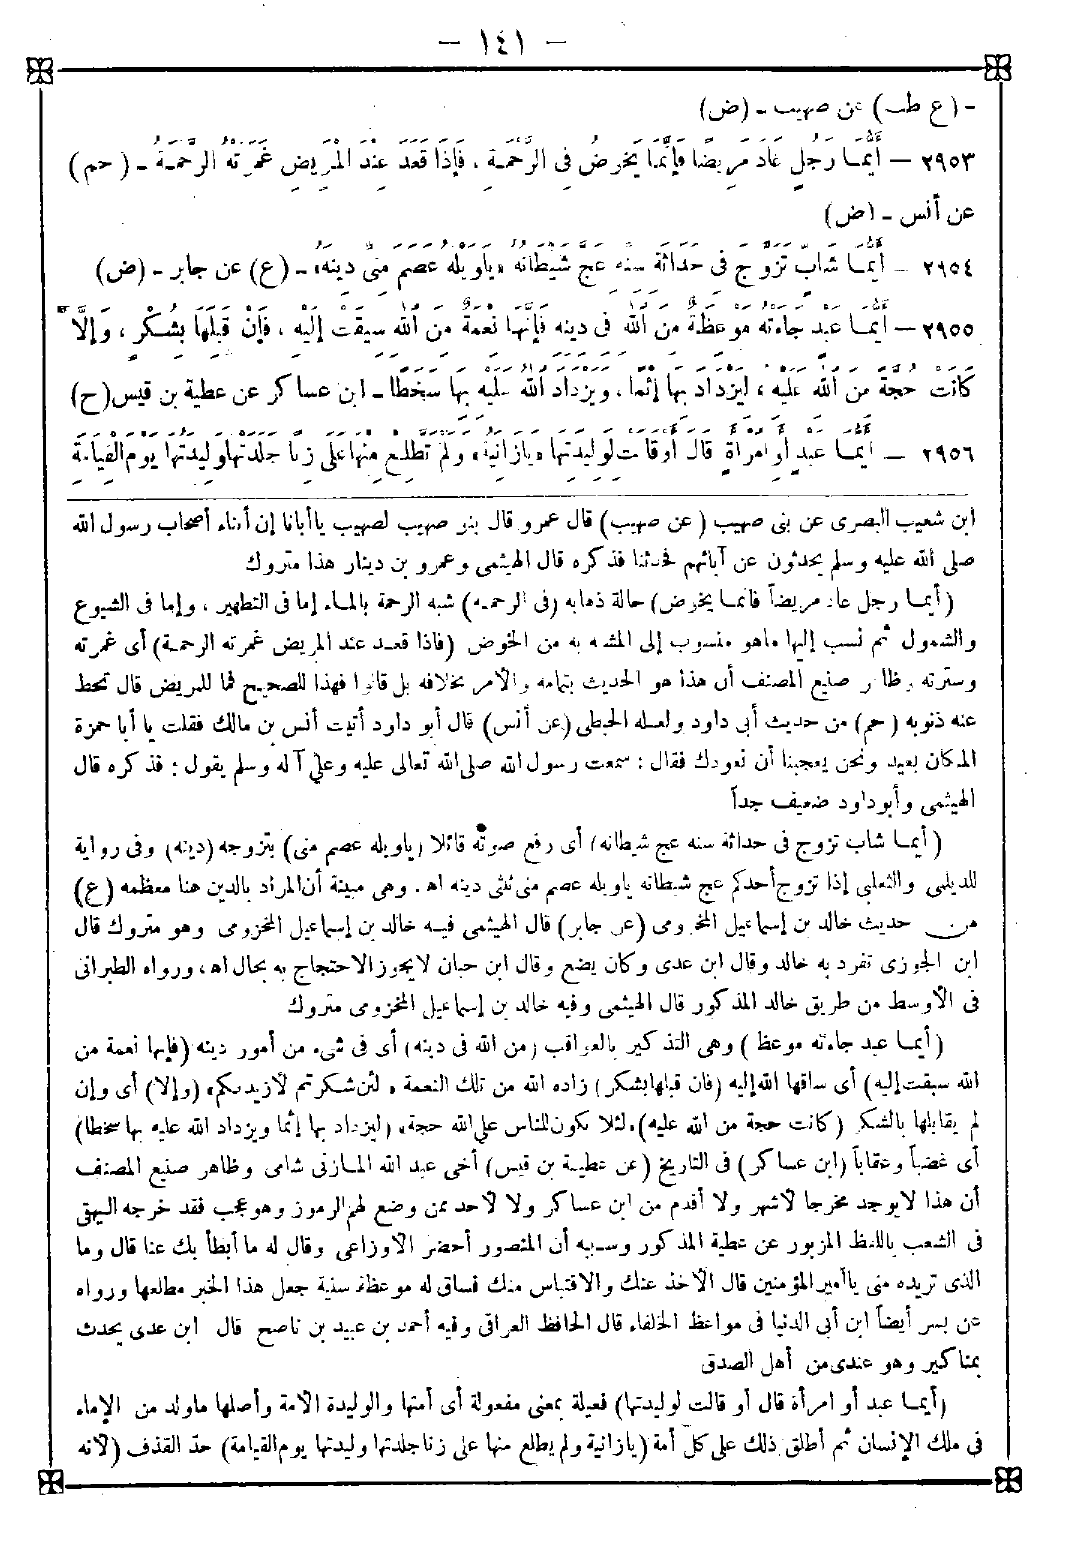 - ١٤١ -
- (ع طب) عن صهيب - (ض)
٢٩٥٣ - أَيُّمَا رَجُلٍ عَادَ مَرِيضًا فَإِنَّمَا يَخُوضُ فِى الرَّحْمَةِ ، فَإِذَا قَعَدَ عِنْدَ الْمَرِيضِ غَمَرَتْهُ الرَّحْمَةُ - (حم)
عن أنس - (ض)
٢٩٥٤ - أَيُّمَا شَابٍّ تَزَوَّجَ فِى حَدَاثَةِ سِنِّهِ عَجَّ شَيْطَانُهُ «يَاوَيْلَهُ عَصَمَ مِنِّى دِينَهُ» - (ع) عن جابر - (ض)
٢٩٥٥ - أَيُّمَا عَبْدٍ جَاءَتْهُ مَوْعِظَةٌ مِنَ اللهِ فِى دِينِهِ فَإِنَّهَا نِعْمَةٌ مِنَ اللهِ سِيقَتْ إِلَيْهِ ، فَإِنْ قَبِلَهَا بِشُكْرٍ ، وَإِلَّا
كَانَتْ حُجَّةً مِنَ اللهِ عَلَيْهِ ، لِيَزْدَادَ بِهَا إِثْمًا ، وَيَزْدَادَ اللهُ عَلَيْهِ بِهَا سَخَطًا - ابن عساكر عن عطية بن قيس (ح)
٢٩٥٦ - أَيُّمَا عَبْدٍ أَوِ امْرَأَةٍ قَالَ أَوْ قَالَتْ لِوَلِيدَتِهَا «يَازَانِيَةُ» وَلَمْ تَطَّلِعْ مِنْهَا عَلَى زِنًا جَلَدَتْهَا وَلِيدَتُهَا يَوْمَ الْقِيَامَةِ
ابن شعيب البصرى عن بنى صهيب (عن صهيب) قال عمرو قال بنو صهيب لصهيب ياأبانا إن أبناء أصحاب رسول الله
صلى الله عليه وسلم يحدثون عن آبائهم فحدثنا فذكره قال الهيثمى وعمرو بن دينار هذا متروك
(أيما رجل عاد مريضاً فإنما يخوض) حالة ذهابه (فى الرحمة) شبه الرحمة بالماء إما فى التطهير ، وإما فى الشيوع
والشمول ثم نسب إليها ماهو منسوب إلى المشبه به من الخوض (فاذا قعد عند المريض غمرته الرحمة) أى غمرته
وسترته وظاهر صنيع المصنف أن هذا هو الحديث بتمامه والأمر بخلافه بل قالوا فهذا للصحيح فما للمريض قال تحط
عنه ذنوبه (حم) من حديث أبى داود ولعله الحبطى (عن أنس) قال أبو داود أتيت أنس بن مالك فقلت يا أبا حمزة
المكان بعيد ونحن يعجبنا أن نعودك فقال : سمعت رسول الله صلى الله تعالى عليه وعلى آله وسلم يقول : فذكره قال
الهيثمى وأبو داود ضعيف جداً
(أيما شاب تزوج فى حداثة سنه عج شيطانه) أى رفع صوته قائلا (ياويله عصم منى) بتزوجه (دينه) وفى رواية
للديلمى والثعلبى إذا تزوج أحدكم عج شيطانه ياويله عصم منى ثلثى دينه اه . وهى مبينة أن المراد بالدين هنا معظمه (ع)
من حديث خالد بن إسماعيل المخزومى (عن جابر) قال الهيثمى فيه خالد بن إسماعيل المخزومى وهو متروك قال
ابن الجوزى تفرد به خالد وقال ابن عدى وكان يضع وقال ابن حبان لايجوز الاحتجاج به بحال اه ، ورواه الطبرانى
فى الأوسط من طريق خالد المذكور قال الهيثمى وفيه خالد بن إسماعيل المخزومى متروك
(أيما عبد جاءته موعظة) وهى التذكير بالعواقب (من الله فى دينه) أى فى شىء من أمور دينه (فإنها نعمة من
الله سيقت إليه) أى ساقها الله إليه (فان قبلها بشكر) زاده الله من تلك النعمة «لئن شكرتم لأزيدنكم» (وإلا) أى وإن
لم يقابلها بالشكر (كانت حجة من الله عليه) «لئلا يكون للناس على الله حجة» (ليزداد بها إثما ويزداد الله عليه بها سخطا)
أى غضباً وعقاباً (ابن عساكر) فى التاريخ (عن عطية بن قيس) أخى عبد الله المازنى شامى وظاهر صنيع المصنف
أن هذا لايوجد مخرجا لأشهر ولا أقدم من ابن عساكر ولا لأحد ممن وضع لهم الرموز وهو عجب فقد خرجه البيهقى
فى الشعب باللفظ المزبور عن عطية المذكور وسببه أن المنصور أحضر الأوزاعى وقال له ما أبطأ بك عنا قال وما
الذى تريده منى ياأمير المؤمنين قال الأخذ عنك والاقتباس منك فساق له موعظة سنية جعل هذا الخبر مطلعها ورواه
عن بسر أيضاً ابن أبى الدنيا فى مواعظ الخلفاء قال الحافظ العراقى وفيه أحمد بن عبيد بن ناصح قال ابن عدى يحدث
بمناكير وهو عندى من أهل الصدق
(أيما عبد أو امرأة قال أو قالت لوليدتها) فعيلة بمعنى مفعولة أى أمتها والوليدة الأمة وأصلها ماولد من الإماء
فى ملك الإنسان ثم أطلق ذلك على كل أمة (يازانية ولم يطلع منها على زنا جلدتها وليدتها يوم القيامة) حدّ القذف (لأنه